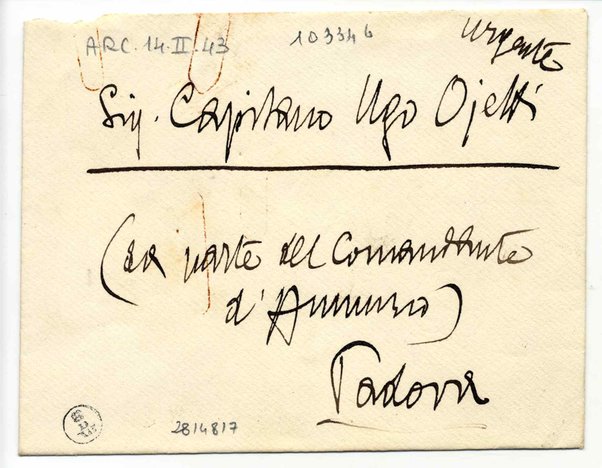 ARC. 14. II. 43
103346
urgente
Sig. Capitano Ugo Ojetti
(da parte del Comandante
d'Annunzio)
Padova
2814817